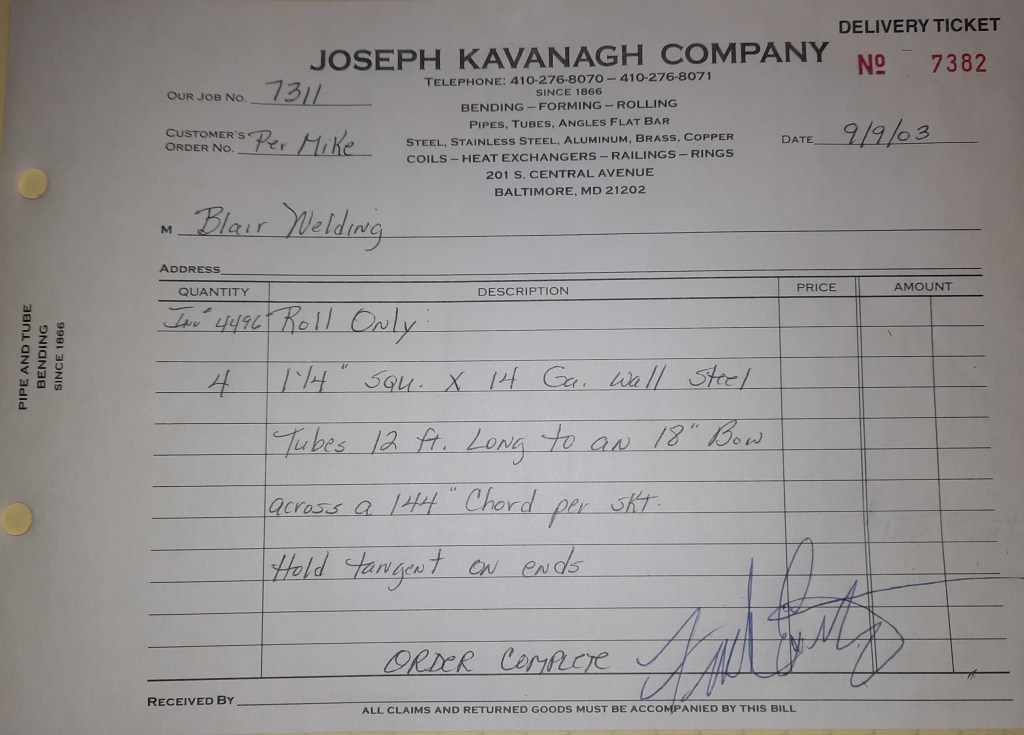 DELIVERY TICKET
JOSEPH KAVANAGH COMPANY
Nº 7382
TELEPHONE: 410-276-8070 – 410-276-8071
SINCE 1866
OUR JOB NO. 7311
BENDING – FORMING – ROLLING
PIPES, TUBES, ANGLES FLAT BAR
CUSTOMER'S ORDER NO. Per Mike
STEEL, STAINLESS STEEL, ALUMINUM, BRASS, COPPER
DATE 9/9/03
COILS – HEAT EXCHANGERS – RAILINGS – RINGS
201 S. CENTRAL AVENUE
BALTIMORE, MD 21202
M Blair Welding
ADDRESS
QUANTITY DESCRIPTION PRICE AMOUNT
Inv# 4496 Roll Only
4 1 1/4" squ. x 14 Ga. wall Steel
Tubes 12 ft. Long to an 18" Bow
across a 144" Chord per skt.
Hold tangent on ends
ORDER COMPLETE
RECEIVED BY
ALL CLAIMS AND RETURNED GOODS MUST BE ACCOMPANIED BY THIS BILL
PIPE AND TUBE
BENDING
SINCE 1866